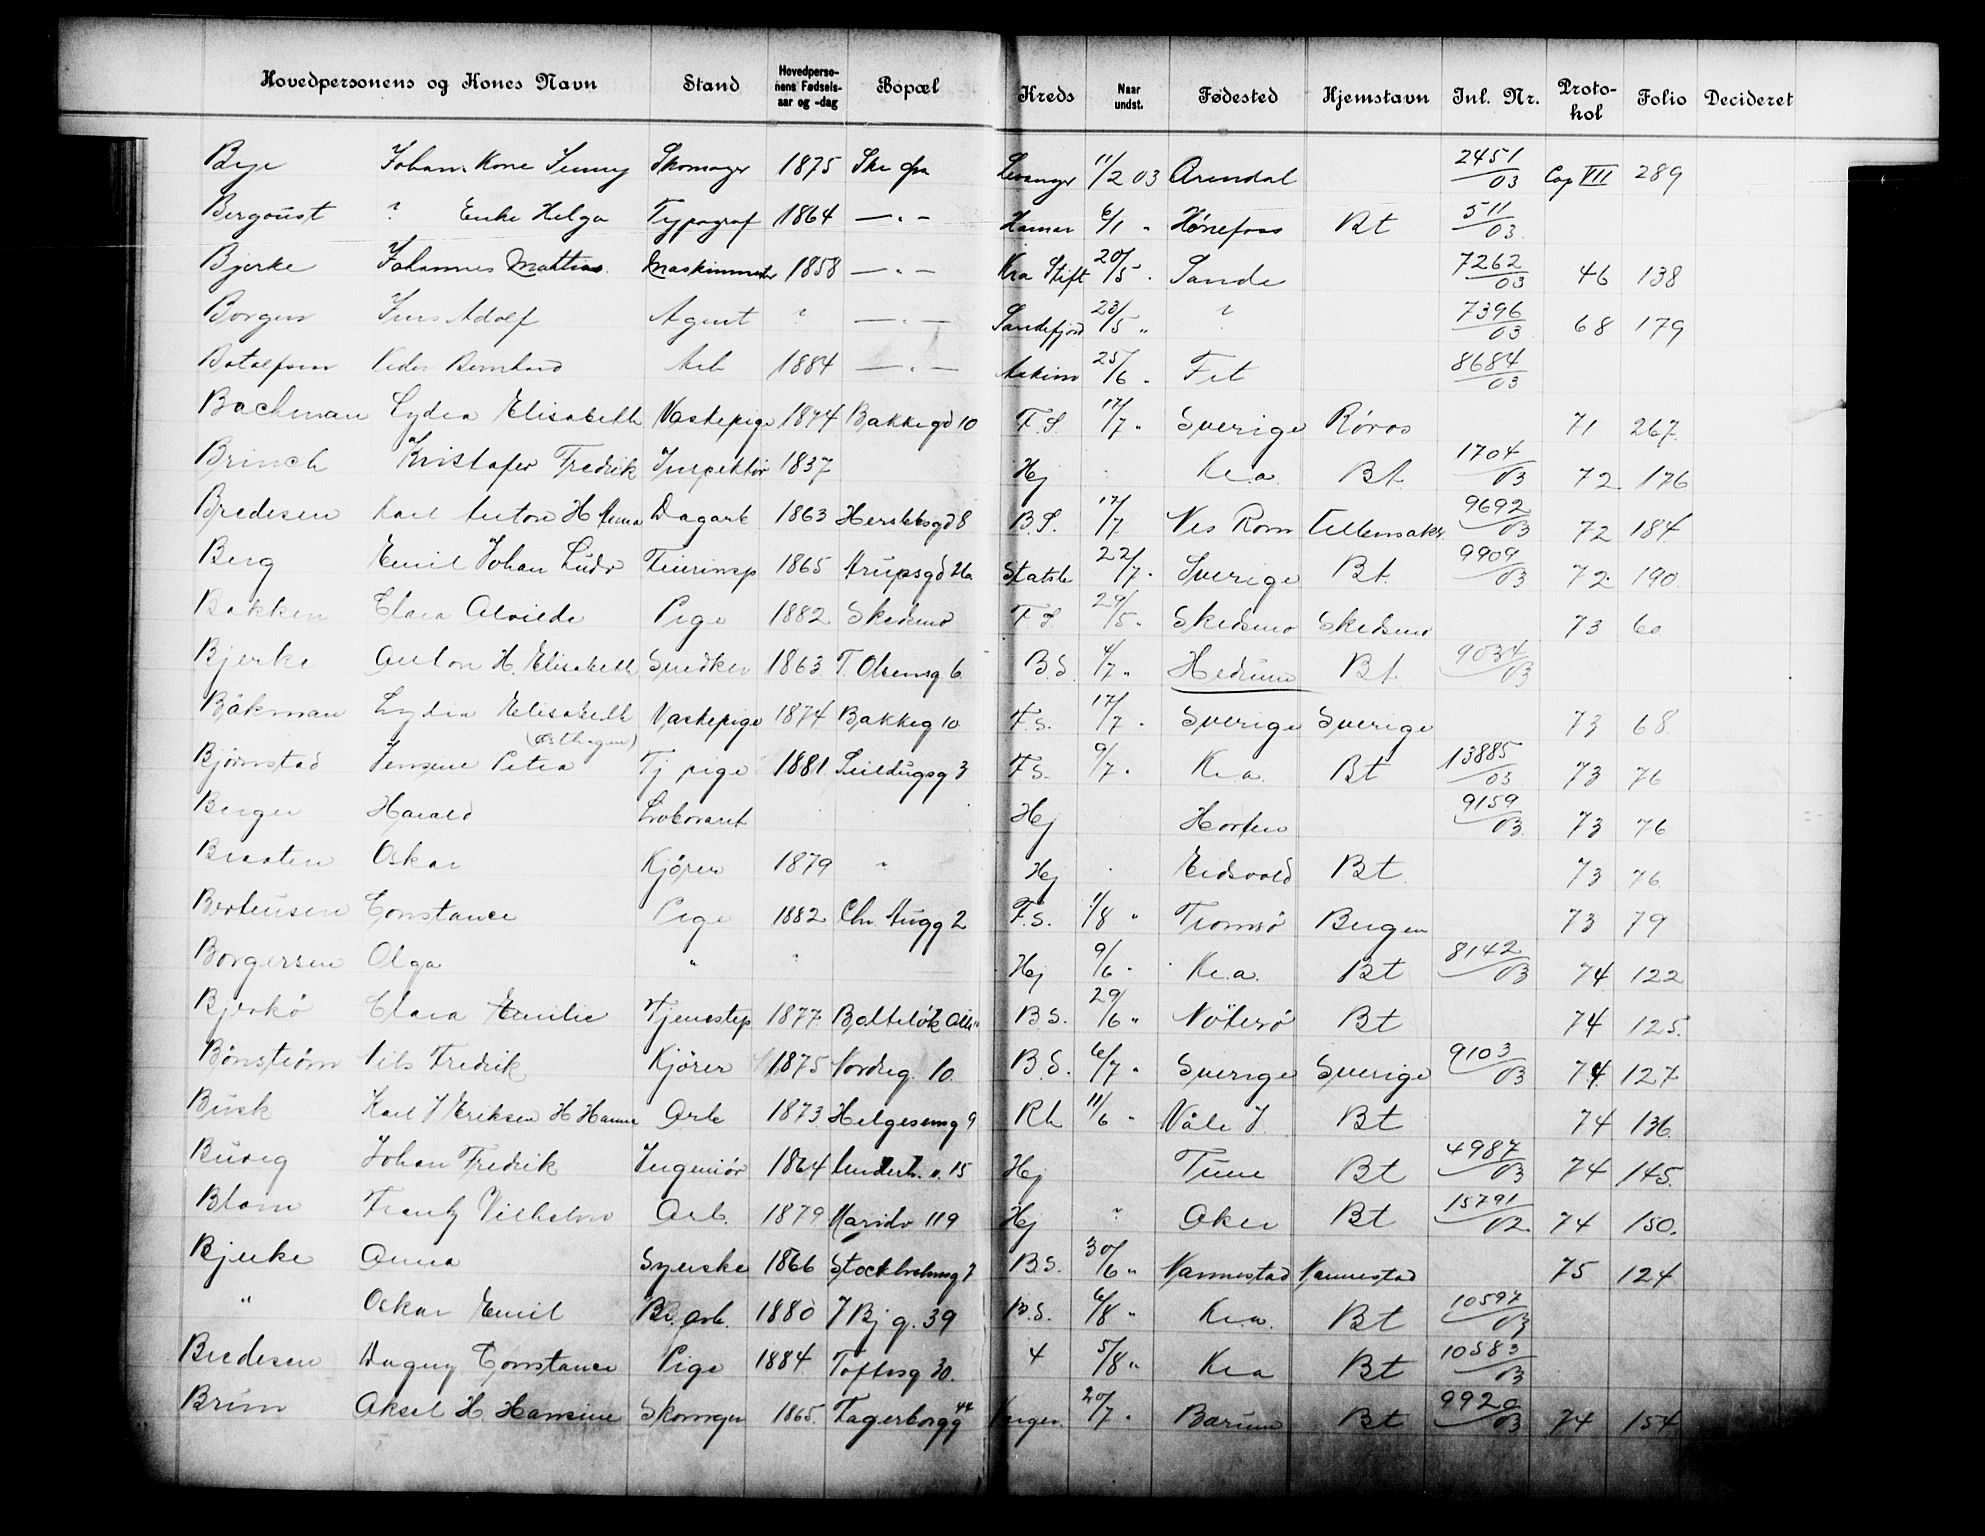 Hovedpersonens og Kones Navn Stand Hovedpersonens Fødselsaar og -dag Bopæl Kreds Naar undst. Fødested Hjemstavn Inl. Nr. Protokol Folio Decideret
Beje Johan. Kone Jenny Skomager 1875 Ske fra Levanger 11/2 03 Arendal 2451/03 Cop VII 289
Bergquist ? Enke Helga Typograf 1864 —„— Hamar 6/1 „ Hønefoss Bt 511/03
Bjerke Johannes Mathias Maskinmester 1858 —„— Kra Stift 20/5 „ Sande 7262/03 46 138
Borgen Jens Adolf Agent ? —„— Sandefjord 23/5 „ ? 7396/03 68 179
Botolfsen Peder Bernhard Arb 1884 —„— Askim 25/6 „ Fet 8684/03
Bachman Lydia Elisabeth Vaskepige 1874 Bakkegd 10 F.S. 17/7 „ Sverige Røros 71 267
Brinch Kristofer Fredrik Inspektør 1837 Hej Kr.a. Bt. 1704/03 72 176
Bredesen Karl Anton H Anna Dagarb 1863 Herslebsgd 8 B.S. 17/7 Nes Rom Ullensaker 9692/03 72 184
Berg Emil Johan Ludv 1865 Arupsgd 26 Statsb 22/7 „ Sverige Bt. 9909/03 72 190
Bakken Clara Alvilde Pige 1882 Skedsmo F.S. 29/5 „ Skedsmo Skedsmo 73 60
Bjerke Anton H. Elisabeth Snedker 1863 T. Olsensg 6 B.S. 4/7 „ Hedrum Bt. 9034/03
Båkman Lydia Elisabeth Vaskepige 1874 Bakkeg 10 F.S. 17/7 „ Sverige Sverige 73 68
(Østhagen)
Bjørnstad Jensine Petra Tj pige 1881 Seildugsg 3 F.S. 9/7 „ Kr.a. Bt 13885/03 73 76
Berger Harald Laborant Hej Horten 9159/03 73 76
Braaten Oskar Kjører 1879 „ Hej Eidsvold Bt. 73 76
Berteusen Constance Pige 1882 Chr Augg 2 F.S. 1/8 „ Tromsø Bergen 73 79
Borgersen Olga „ ? Hej 9/6 „ Kr.a. Bt 8142/03 74 122
Bjerkø Clara Emilie Tjenestep 1877 Bolteløk Alle B.S. 29/6 „ Nøterø Bt 74 125.
Bønstrøm Nils Fredrik Kjører 1875 Nordreg. 10 B.S. 6/7 „ Sverige Sverige 9103/03 74 127
Busk Karl J Eriksen H Hanna Arb 1873 Helgesensg 9 Rh 11/6 „ Våle J. Bt 74 136
Bureg Johan Fredrik Ingeniør 1864 Underh. v. 15 Hej Tune Bt 4987/03 74 145.
Blom Frantz Vilhelm Arb. 1879 Maridv 119 Hej ? Aker Bt 15791/02 74 150.
Bjerke Anna Syerske 1866 Stockholmsg 7 B.S. 30/6 „ Vannestad Vannestad 75 124
„ Oskar Emil Br. arb. 1880 J Bj g. 39 B.S. 6/8 „ Kr.a. Bt 10597/03
Bredesen Dagny Constance Pige 1884 Toftesg 30. 4 5/8 „ Kra Bt 10583/03
Brun Aksel H. Hansine Skomager 1865. Fagerborgg 44 20/7 „ Bærum Bt 9920/03 74 154